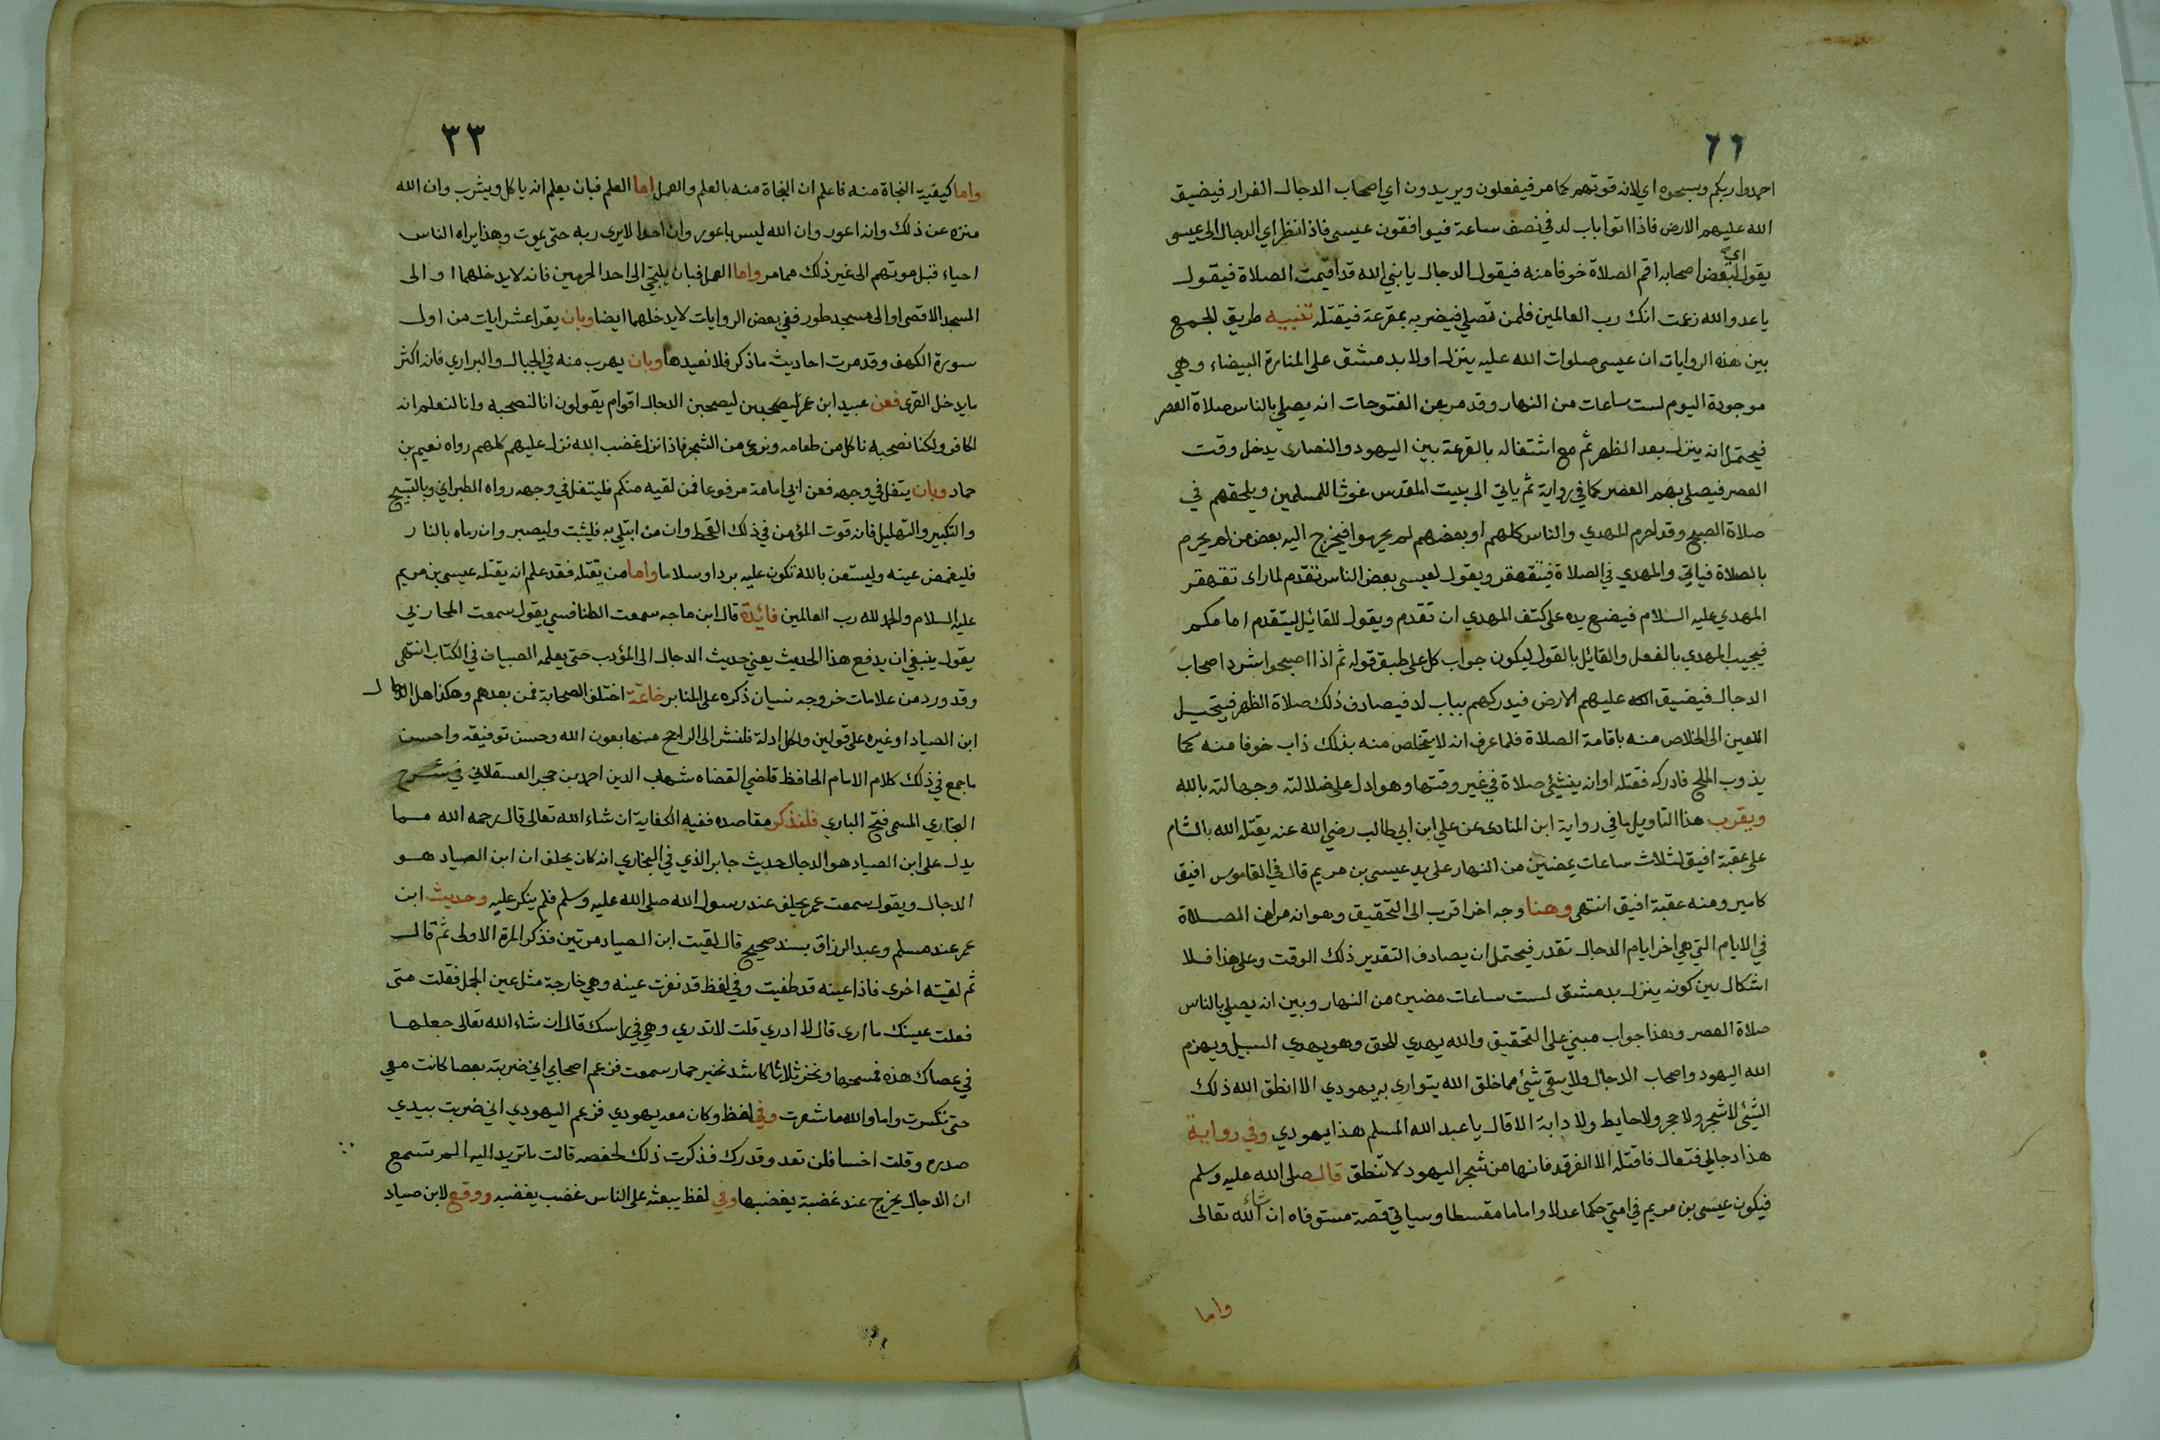 ٦٦
احمدوا ربكم وسبحوه اي لانه قوتهم كما مر فيفعلون ويريدون اي اصحاب الدجال الفرار فيضيق
الله عليهم الارض فاذا اتوا باب لد في نصف ساعة فيوافقون عيسى فاذا نظر اي الدجال الى عيسى
اي
يقول لبعض اصحابه اقم الصلاة خوفا منه فيقول الدجال يا نبي الله قد اقيمت الصلاة فيقول
يا عدو الله زعمت انك رب العالمين فلمن تصلي فيضربه بمقرعة فيقتله تنبيه طريق الجمع
بين هذه الروايات ان عيسى صلوات الله عليه ينزل اولا بدمشق على المنارة البيضاء وهي
موجودة اليوم لست ساعات من النهار وقد مر عن الفتوحات انه يصلي بالناس صلاة العصر
فيحتمل انه ينزل بعد الظهر ثم مع اشتغاله بالقرعة بين اليهود والنصارى يدخل وقت
العصر فيصلي بهم العصر كما في رواية ثم ياتي الى بيت المقدس غوثا للمسلمين ويلحقهم في
صلاة الصبح وقد احرم المهدي والناس كلهم او بعضهم لم يحرموا فيخرج اليه بعض من لم يحرم
بالصلاة فياتي والمهدي في الصلاة فيتقهقر ويقول لعيسى بعض الناس تقدم لما راى تقهقر
المهدي عليه السلام فيضع يده على كتف المهدي ان تقدم ويقول للقائل ليتقدم امامكم
فيجيب المهدي بالفعل والقائل بالقول ليكون جواب كل على طبق قوله ثم اذا اصبحوا شرد اصحاب
الدجال فيضيق الله عليهم الارض فيدركهم بباب لد فيصادف ذلك صلاة الظهر فيتحيل
اللعين الى الخلاص منه باقامة الصلاة فلما عرف انه لا يتخلص منه بذلك ذاب خوفا منه كما
يذوب الملح فادركه فقتله او انه ينشئ صلاة في غير وقتها وهو ادل على ضلالته وجهالته بالله
ويقرب هذا التاويل ما في رواية ابن المنادى عن علي ابن ابي طالب رضي الله عنه يقتله الله بالشام
على عقبة افيق لثلاث ساعات يمضين من النهار على يد عيسى بن مريم قال في القاموس افيق
كامير ومنه عقبة افيق انتهى وهنا وجه اخر اقرب الى التحقيق وهو انه مر ان الصلاة
في الايام التي هي اخر ايام الدجال تقدر فيحتمل ان يصادف التقدير ذلك الوقت وعلى هذا فلا
اشكال بين كونه ينزل بدمشق لست ساعات مضين من النهار وبين انه يصلي بالناس
صلاة العصر وهذا جواب مبني على التحقيق والله يهدي للحق وهو يهدي السبيل ويهزم
الله اليهود واصحاب الدجال ولا يبقى شئ مما خلق الله يتوارى به يهودي الا انطق الله ذلك
الشئ لا شجر ولا حجر ولا حايط ولا دابة الا قال يا عبد الله المسلم هذا يهودي وفي رواية
هذا دجالي فتعال فاقتله الا الغرقد فانها من شجر اليهود لا تنطق قال صلى الله عليه وسلم
فيكون عيسى بن مريم في امتي حكما عدلا واماما مقسطا وسياتي قصة مستوفاه ان شاء الله تعالى
واما
٣٣
واما كيفية النجاة منه فاعلم ان النجاة منه بالعلم والعمل اما العلم فبان يعلم انه ياكل ويشرب وان الله
منزه عن ذلك وانه اعور وان الله ليس باعور وان احدا لا يرى ربه حتى يموت وهذا يراه الناس
احياء قبل موتهم الى غير ذلك مما مر واما العمل فبان يلتجي الى احد الحرمين فانه لا يدخلهما او الى
المسجد الاقصى او الى مسجد طور ففي بعض الروايات لا يدخلهما ايضا وبان يقرا عشر ايات من اول
سورة الكهف وقد مرت احاديث ما ذكر فلا نعيدها وبان يهرب منه في الجبال والبراري فانه اكثر
ما يدخل القرى فعن عبيد ابن عمر ليصحبن الدجال اقوام يقولون انا لنصحبه وانا لنعلم انه
لكافر ولكنا نصحبه ناكل من طعامه ونرعى من الشجر فاذا نزل غضب الله نزل عليهم كلهم رواه نعيم بن
حماد وبان يتفل في وجهه فعن ابي امامة مرفوعا فمن لقيه منكم فليتفل في وجهه رواه الطبراني وبالتسبيح
والتكبير والتهليل فانه قوت المؤمن في ذلك القحط وان من ابتلي به فليثبت وليصبر وان رماه بالنار
فليغمض عينه وليستعن بالله تكون عليه بردا وسلاما واما من يقتله فقد علم انه يقتله عيسى بن مريم
عليه السلام والحمد لله رب العالمين فائدة قال ابن ماجه سمعت الطنافسي يقول سمعت المحاربي
يقول ينبغي ان يدفع هذا الحديث يعني حديث الدجال الى المؤدب حتى يعلمه الصبيان في الكتاب انتهى
وقد ورد من علامات خروجه نسيان ذكره على المنابر خاتمة اختلف الصحابة فمن بعدهم وهكذا هل الدجال
ابن الصياد او غيره على قولين ولكل ادلة فلنشر الى الراجح منها بعون الله وحسن توفيقه واحسن
ما جمع في ذلك كلام الامام الحافظ قاضي القضاه شهاب الدين احمد بن حجر العسقلاني في شرح
البخاري المسمى فتح الباري فلنذكر مقاصده ففيه الكفاية ان شاء الله تعالى قال رحمه الله مما
يدل على ابن الصياد هو الدجال حديث جابر الذي في البخاري انه كان يحلف ان ابن الصياد هو
الدجال ويقول سمعت عمر يحلف عند رسول الله صلى الله عليه وسلم فلم ينكر عليه وحديث ابن
عمر عند مسلم وعبد الرزاق بسند صحيح قال لقيت ابن الصياد مرتين فذكر المرة الاولى ثم قال
ثم لقيته اخرى فاذا عينه قد طفيت وفي لفظ قد نفرت عينه وهي خارجة مثل عين الجمل فقلت متى
فعلت عينك ما ارى قال لا ادري قلت لا تدري وهي في راسك قال ان شاء الله تعالى جعلها
في عصاك هذه فمسحها ونخر ثلاثا كاشد نخير حمار سمعت فزعم اصحابي اني ضربته بعصا كانت معي
حتى تكسرت واما والله ما شعرت وفي لفظ وكان معه يهودي فزعم اليهودي اني ضربت بيدي
صدره وقلت اخسا فلن تعد وقدرك فذكرت ذلك لحفصه قالت ما تريد اليه الم تسمع
ان الدجال يخرج عند غضبة يغضبها وفي لفظ يبعثه على الناس غضب يغضبه ووقع لابن صياد